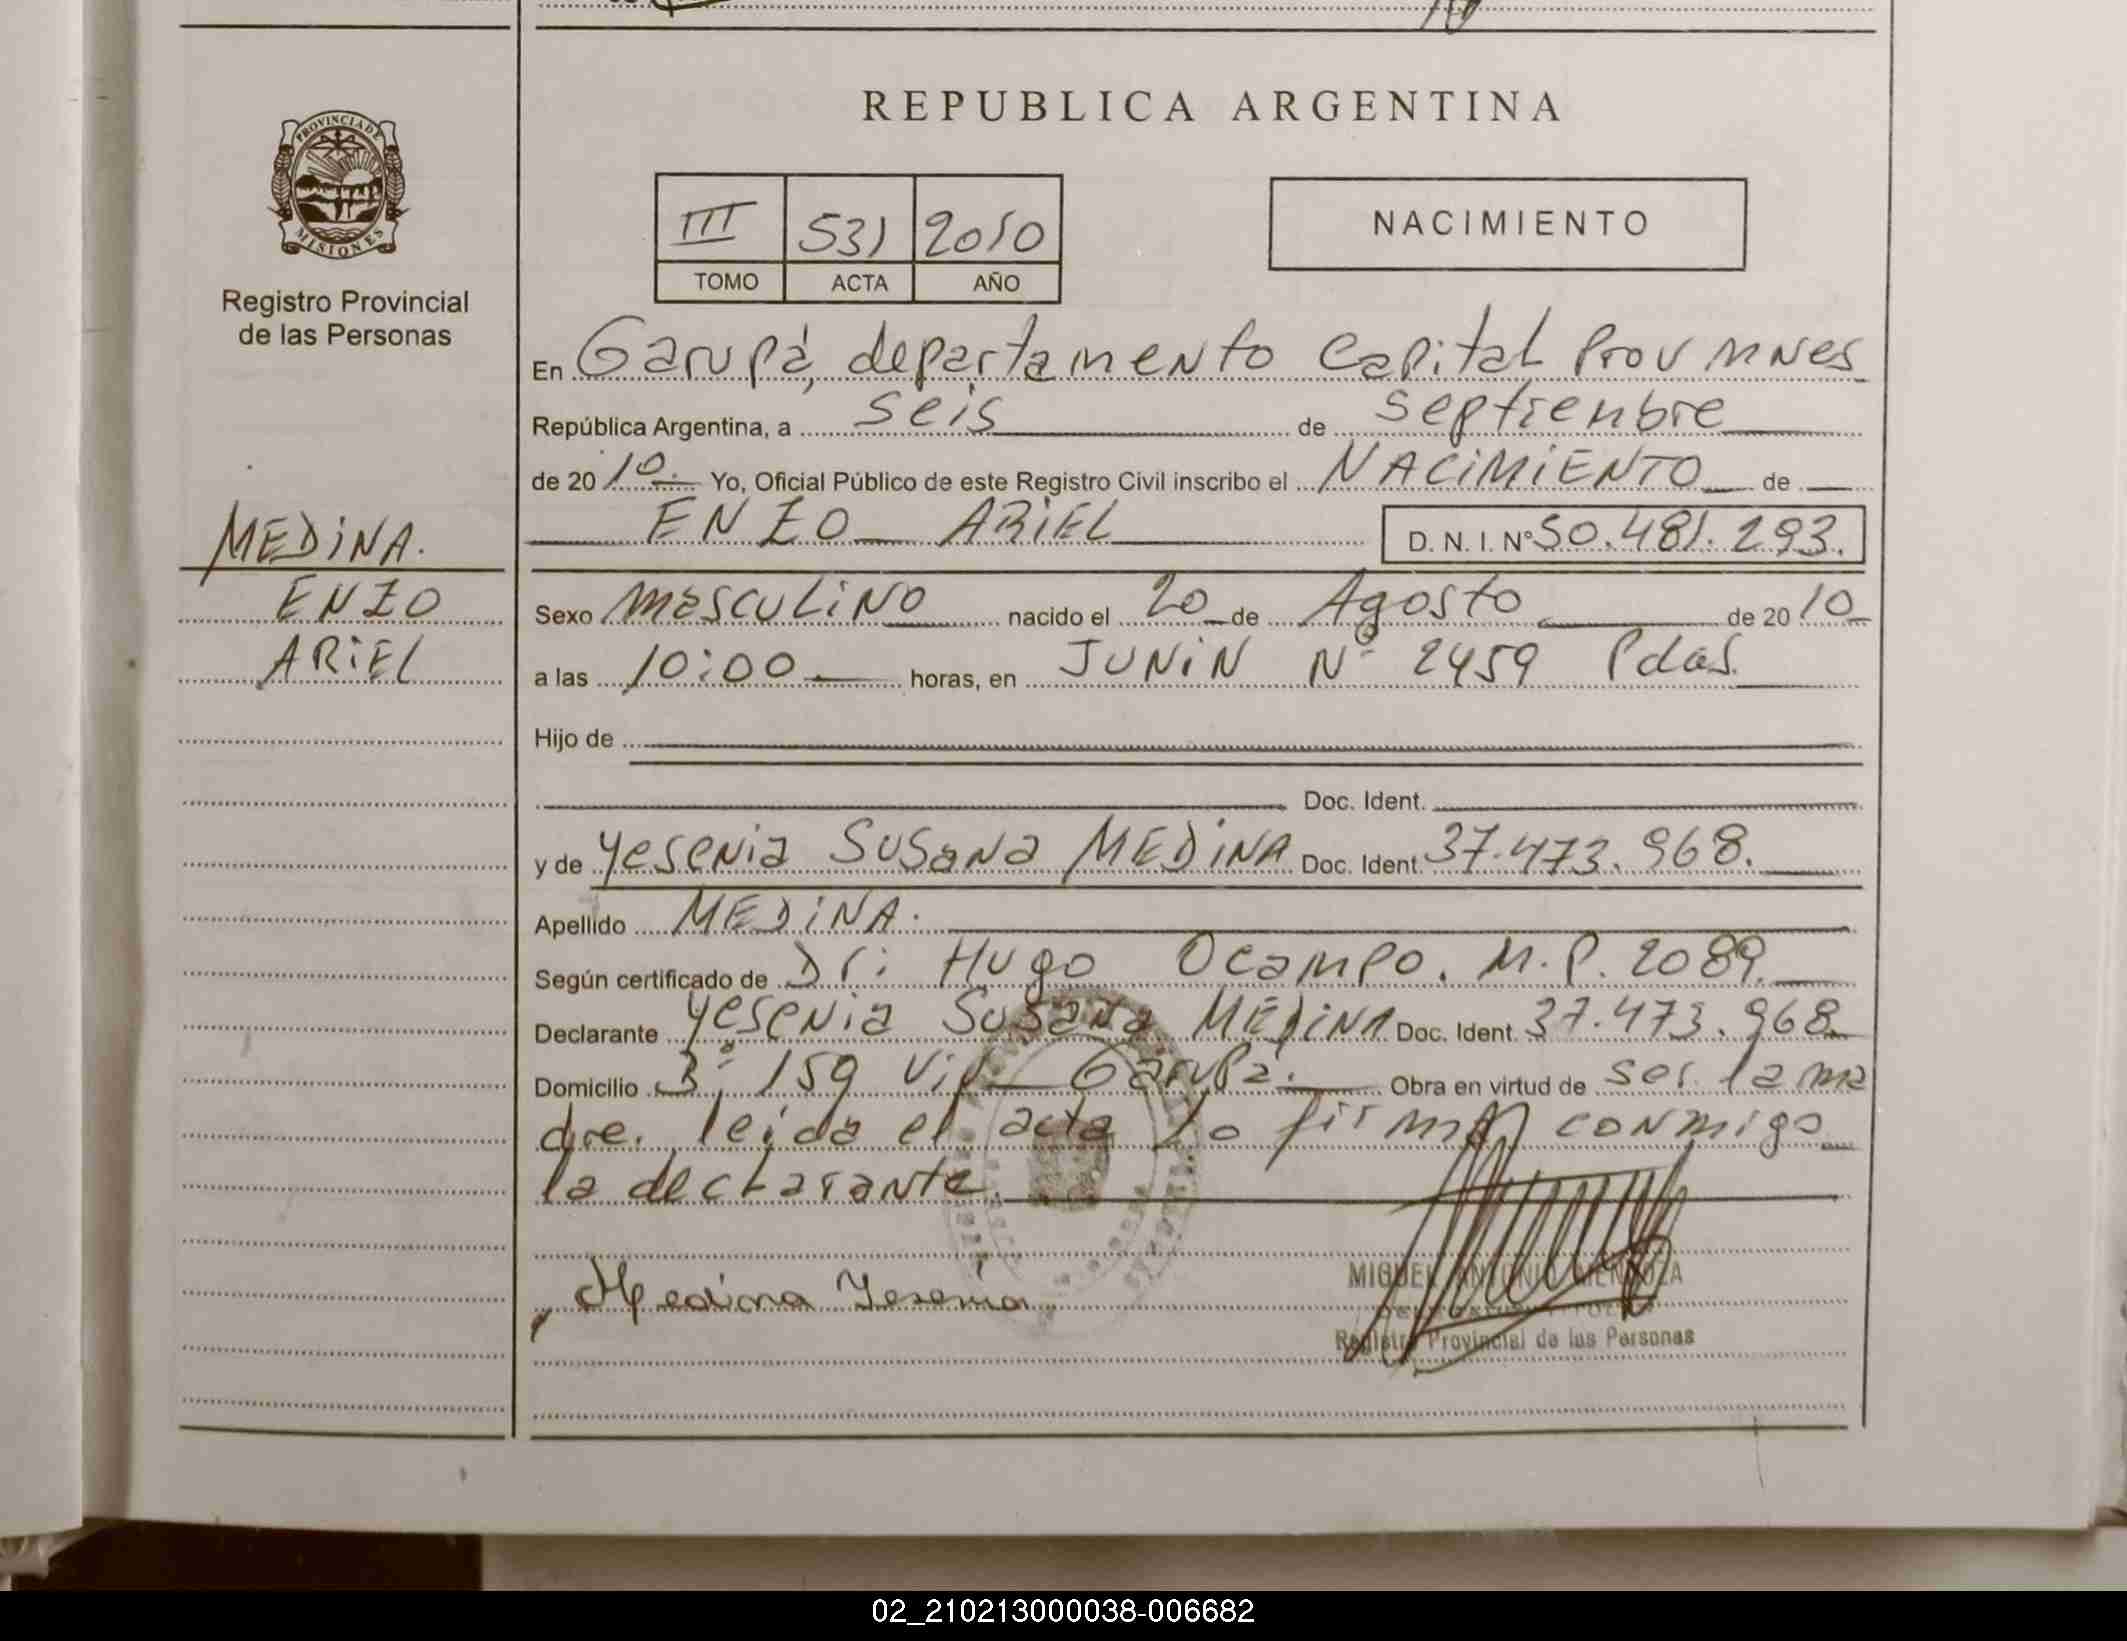 REPUBLICA ARGENTINA
PROVINCIA DE
MISIONES
Registro Provincial
de las Personas
III 531 2010
TOMO ACTA AÑO
NACIMIENTO
En Garupá, departamento Capital Prov Mnes
República Argentina, a seis de septienbre
de 2010 Yo, Oficial Público de este Registro Civil inscribo el NACIMIENTO de
ENZO ARIEL D. N. I. Nº 50.481.293.
MEDINA.
ENZO
ARIEL
Sexo masculino nacido el 20 de Agosto de 2010
a las 10:00 horas, en JUNIN Nº 2459 Pdas.
Hijo de
Doc. Ident.
y de Yesenia Susana MEDINA Doc. Ident. 37.473.968.
Apellido MEDINA.
Según certificado de Dr: Hugo Ocampo. M.P. 2089.
Declarante Yesenia Susana MEDINA Doc. Ident. 37.473.968
Domicilio 3º 159 Viv Garupá. Obra en virtud de ser la ma
dre. leída el acta lo firma conmigo
la declarante.
Medina Yesenia
MIGUEL ANTONIO MENDOZA
Registro Provincial de las Personas
02_210213000038-006682